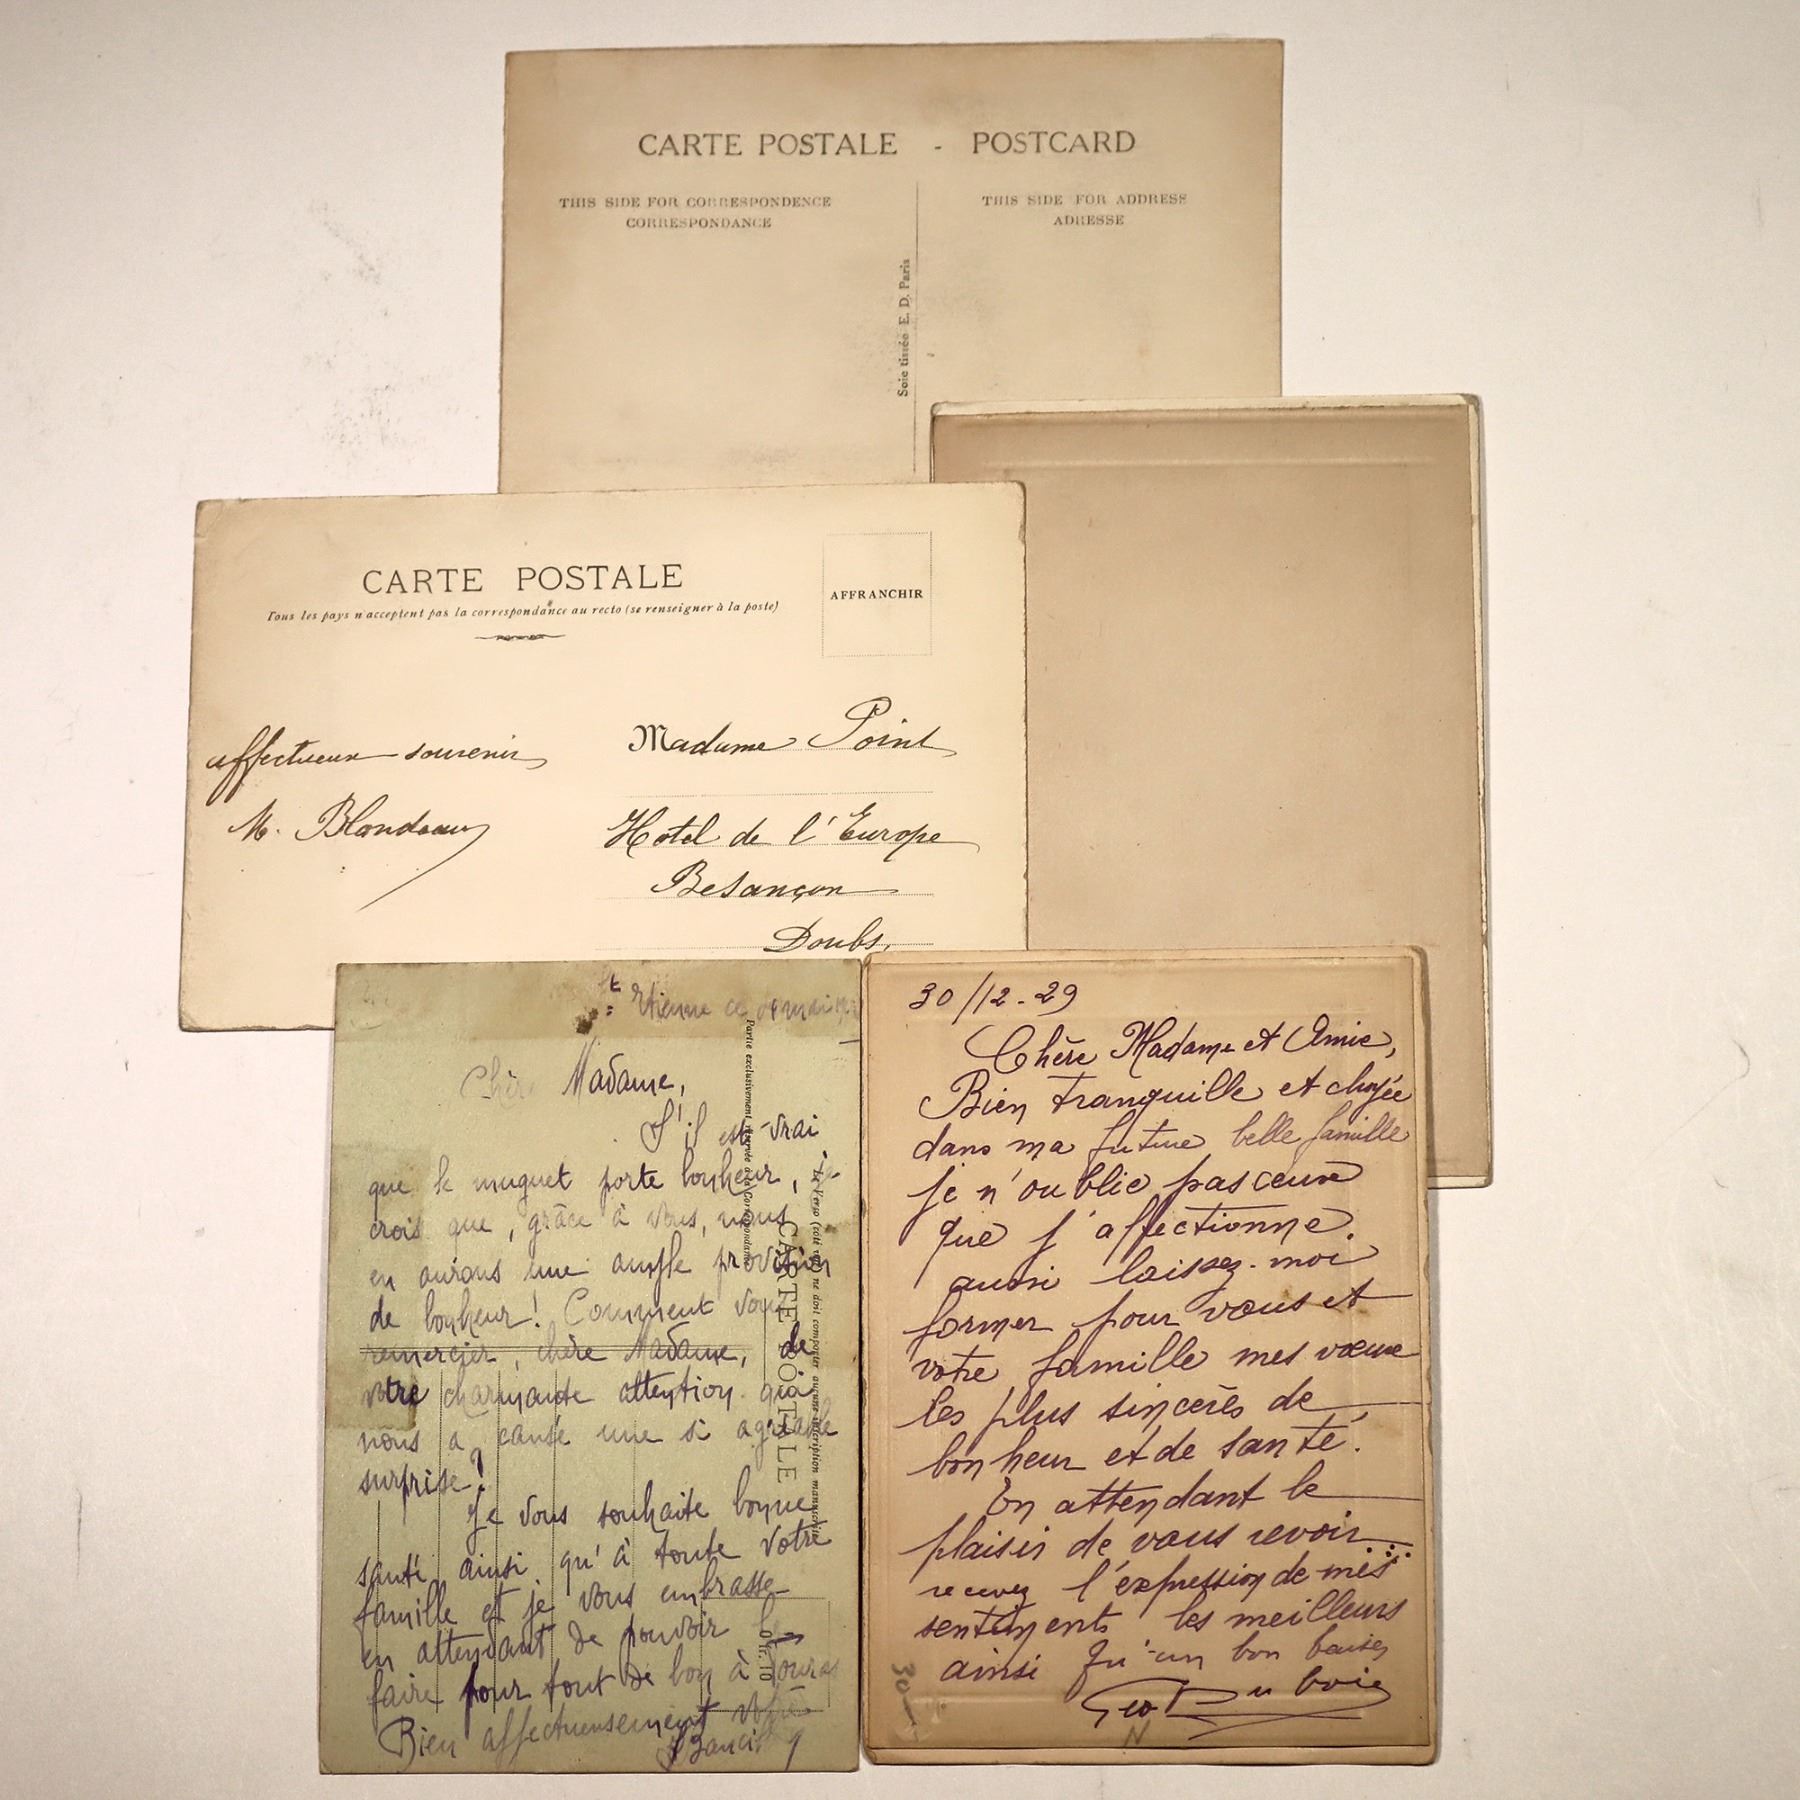 CARTE POSTALE - POSTCARD
THIS SIDE FOR CORRESPONDENCE
CORRESPONDANCE
THIS SIDE FOR ADDRESS
ADRESSE
Soie tissée E. D. Paris
CARTE POSTALE
Tous les pays n'acceptent pas la correspondance au recto (se renseigner à la poste)
AFFRANCHIR
affectueux souvenir
M. Blondeau
Madame Point
Hotel de l'Europe
Besançon
Doubs.
St Etienne ce mai
Chère Madame,
S'il est vrai
que le muguet porte bonheur, je
crois que, grâce à vous, nous
en aurons une ample provision
de bonheur! Comment vous
remercier, chère Madame, de
votre charmante attention qui
nous a causé une si agréable
surprise!
Je vous souhaite bonne
santé ainsi qu'à toute votre
famille et je vous embrasse
en attendant de pouvoir le
faire pour tout de bon à
Bien affectueusement votre
CARTE POSTALE
Partie exclusivement réservée à la Correspondance
Le Verso (côté vue) ne doit comporter aucune inscription manuscrite
0 fr. 10
30/12-29
Chère Madame et Amie,
Bien tranquille et choyée
dans ma future belle famille
je n'oublie pas ceux
que j'affectionne.
aussi laissez-moi
former pour vous et
votre famille mes vœux
les plus sincères de
bonheur et de santé.
En attendant le
plaisir de vous revoir
recevez l'expression de mes
sentiments les meilleurs
ainsi qu'un bon baiser
Geo Dubois
30
N